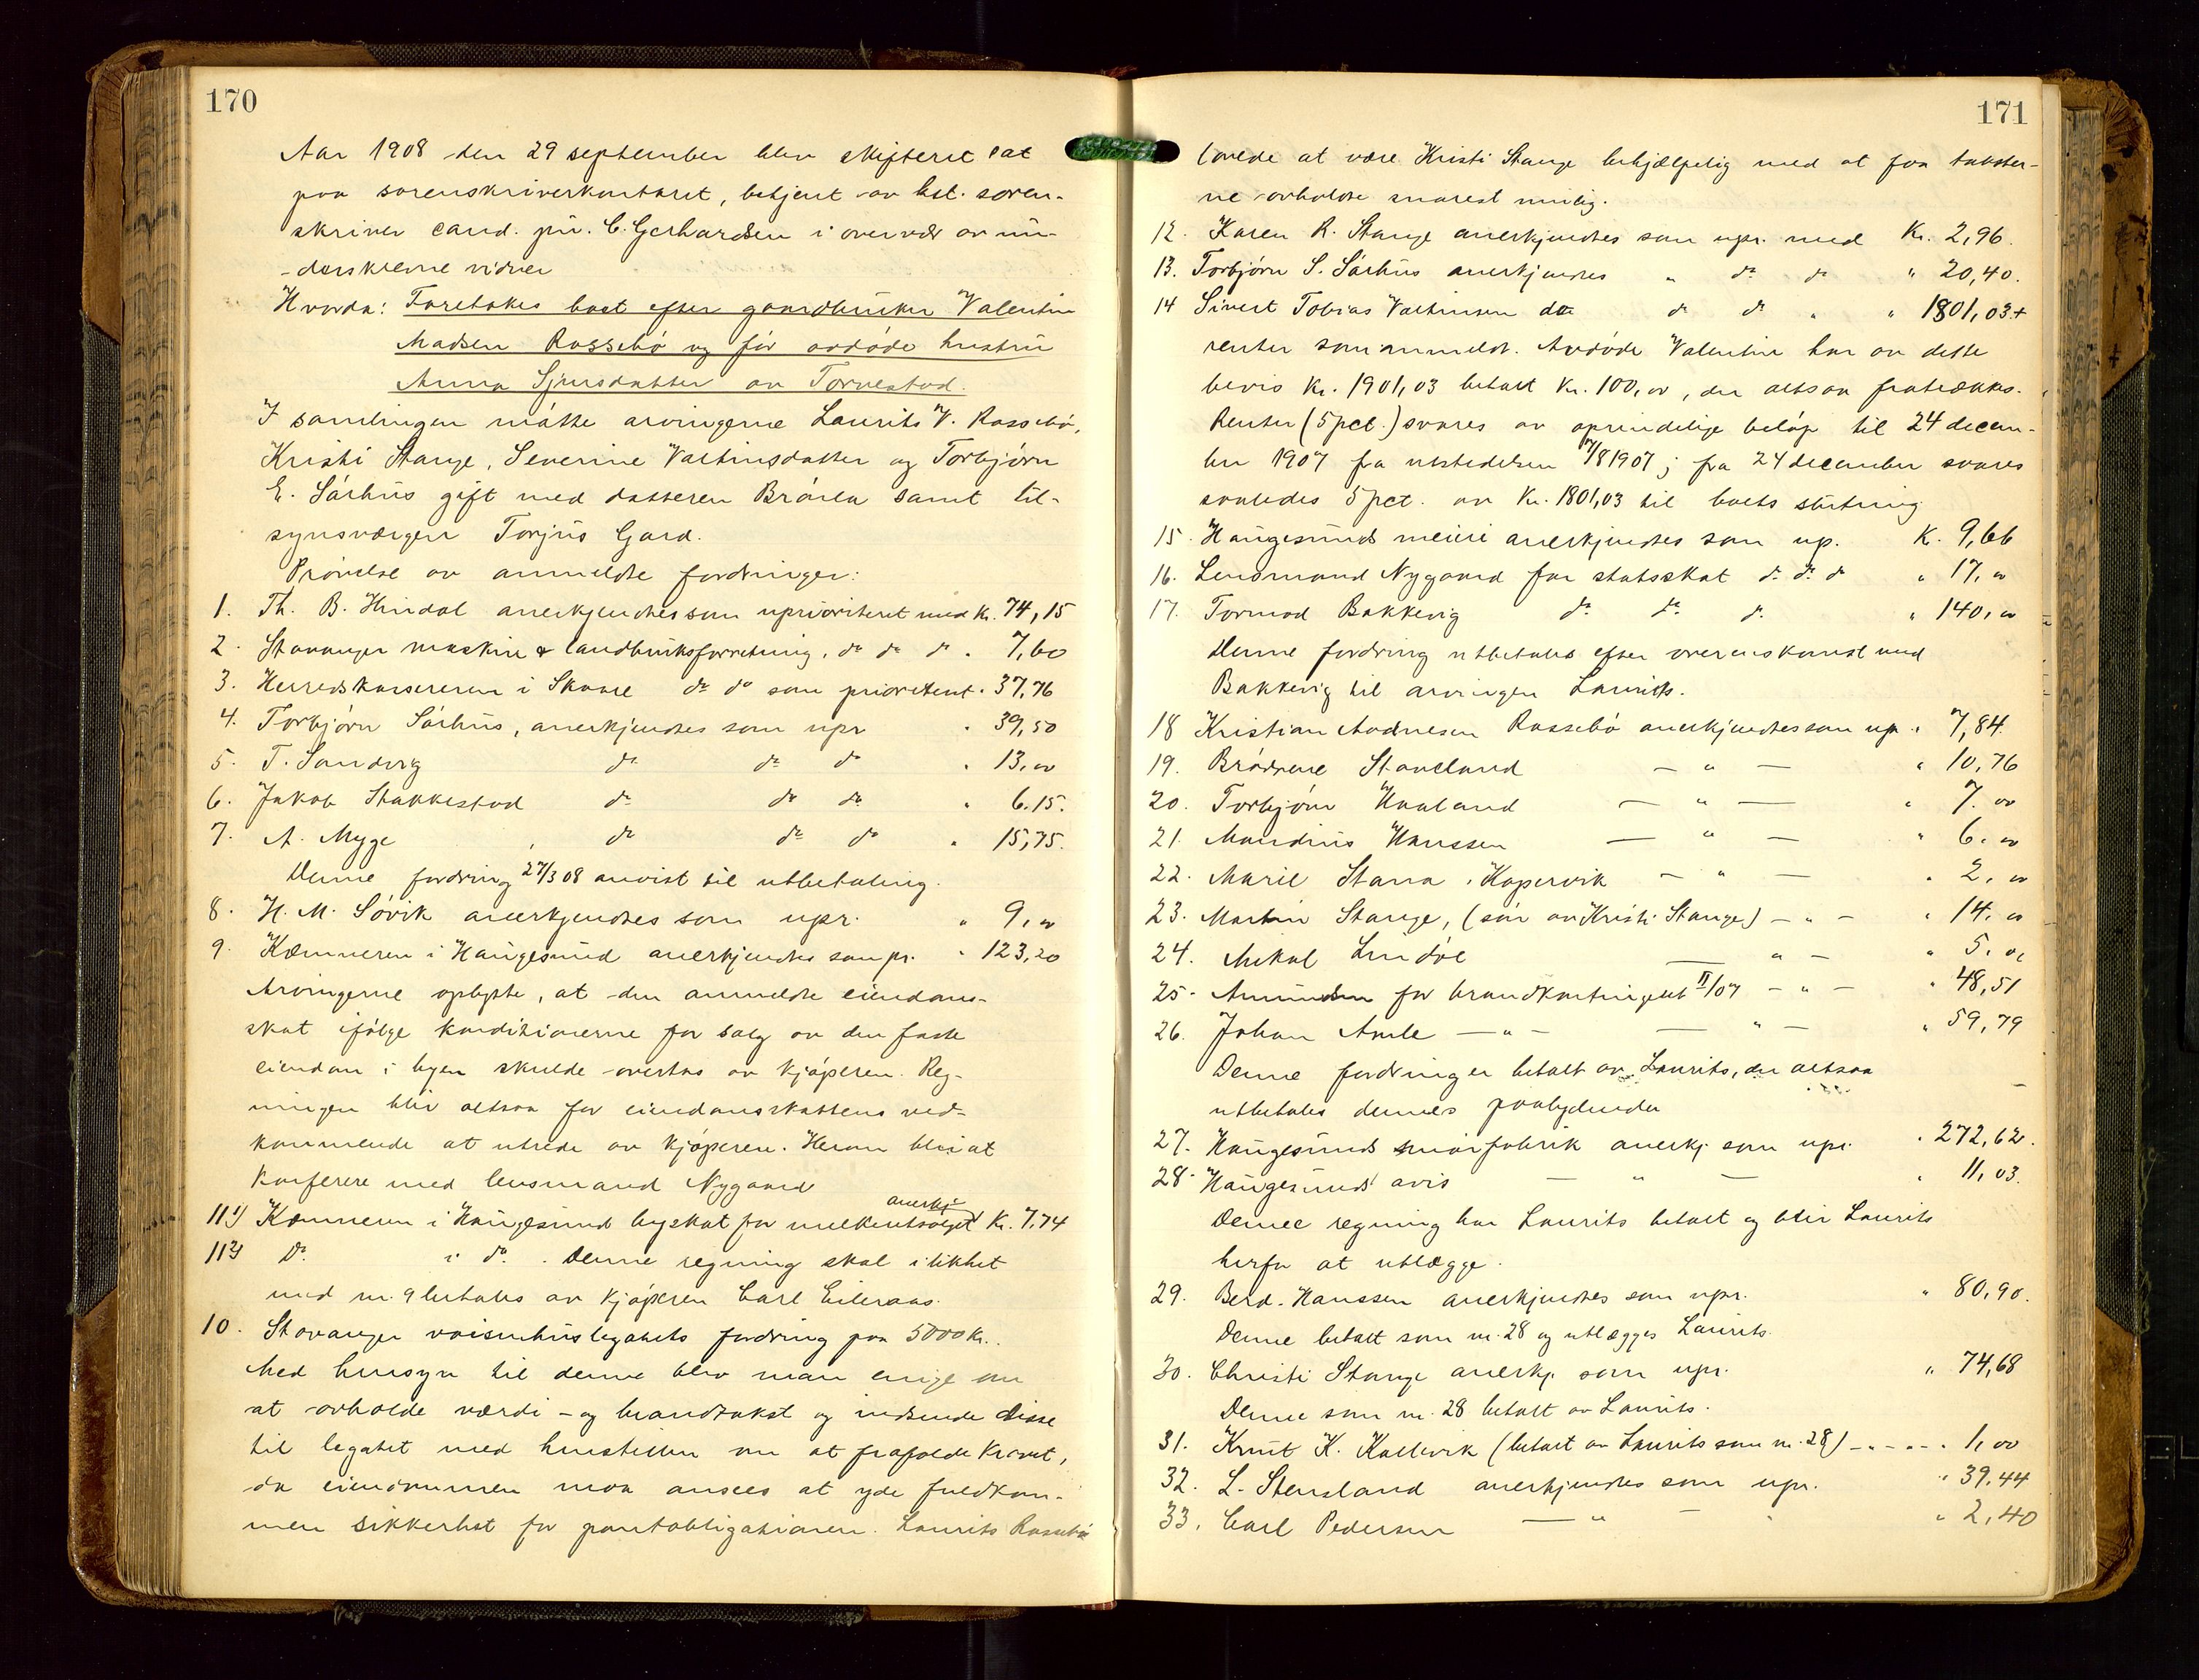 170
Aar 1908 den 29 september blev skifteret sat
paa sorenskriverkontoret, betjent av kst. soren-
skriver cand. jur. C. Gerhardsen i overvær av un-
derskrevne vidner
Hvorda: Foretokes boet efter gaardbruker Valentin
Madsen Rossebø og før avdøde hustru
Anna Sjursdatter av Torvestad.
I samlingen møtte arvingerne Laurits V. Rossebø,
Kristi Stange, Severine Valtinsdatter og Torbjørn
E. Sørhus gift med datteren Brørla samt til-
synsværgen Torjus Gard.
Prøvelse av anmeldte fordringer:
1. Th. B. Hindal anerkjendtes som uprioriteret med Kr. 74,15
2. Stavanger maskin & landbruksforretning, do do do " 7,60
3. Herredskassereren i Skaare do do som prioritert " 37,76
4. Torbjørn Sørhus, anerkjendtes som upr " 39,50
5. T. Sandvig do do do " 13,00
6. Jakob Stakkestad do do do " 6.15.
7. A. Myge do do do " 15,75.
Denne fordring 27/3 08 anvist til utbetaling.
8. H. M. Søvik anerkjendtes som upr. " 9,00
9. Kæmneren i Haugesund anerkjendtes som pr. " 123,20
Arvingerne oplyste, at den anmeldte eiendoms-
skat ifølge konditionerne for salg av den faste
eiendom i byen skulde overtas av kjøperen. Reg-
ningen blir altsaa for eiendomsskattens ved-
kommende at utrede av kjøperen. Herom blir at
konferere med lensmand Nygaard
11 1) Kæmneren i Haugesund byskat for melkeutsalget anerkj Kr. 7,74
11 2) Do i do. Denne regning skal i likhet
med nr. 9 betales av kjøperen Carl Eileraas.
10. Stavanger vaisenhuslegatets fordring paa 5000 Kr..
Med hensyn til denne blev man enige om
at avholde værdi- og brandtakst og indsende disse
til legatet med henstillen om at frafalde kravet,
da eiendommen maa ansees at yde fuldkom-
men sikkerhet for pantobligationen. Laurits Rossebø
171
lovede at være Kristi Stange behjælpelig med at faa takster-
ne avholdte snarest mulig.
12. Karen R. Stange anerkjendtes som upr. med Kr. 2,96.
13. Torbjørn S. Sørhus anerkjendtes " do do " 20,40.
14 Sivert Tobias Valtinsen do do do " " 1801,03 +
renter som anmeldt. Avdøde Valentin har av dette
bevis Kr. 1901,03 betalt Kr. 100,00, der altsaa fratrækkes.
Renter (5 pct.) svares av oprindelige beløp til 24 decem-
ber 1907 fra utstedelsen 17/8 1907; fra 24 december svares
saaledes 5 pct. av Kr. 1801,03 til boets slutning
15. Haugesunds meieri anerkjendtes som up. K. 9,66
16. Lensmand Nygaard for statsskat do do do " 17,00
17. Tormod Bakkevig do do do " 140,00
Denne fordring utbetales efter overenskomst med
Bakkevig til arvingen Laurits.
18 Kristian Andresen Rossebø anerkjendtes som up. " 7,84.
19. Brødrene Staveland — " — " 10,76
20. Torbjørn Haaland — " — " 7.00
21. Mandius Hanssen — " — " 6.00
22. Marie Stana, Kopervik — " — " 2,00
23. Martin Stange, (søn av Kristi Stange) — " — " 14,00
24. Mikal Lindøe — " — " 5.00
25. Amundsen for brandkontingent II/07 — " — " 48,51
26. Johan Amle — " — — " — " 59,79
Denne fordring er betalt av Laurits, der altsaa
utbetales dennes paalydende
27. Haugesunds smørfabrik anerkj. som upr. " 272,62.
28. Haugesunds avis — " — " 11,03.
Denne regning har Laurits betalt og blir Laurits
herfor at utlægge.
29. Berd. Hanssen anerkjendtes som upr. " 80,90.
Denne betalt som nr. 28 og utlægges Laurits.
30. Christi Stange anerkj. som upr. " 74,68
Denne som nr. 28 betalt av Laurits.
31. Knut K. Kallevik (betalt av Laurits som nr. 28) — " — " 1,00
32. L. Stensland anerkjendtes som upr. " 39.44
33. Carl Pedersen — " — " 2,40